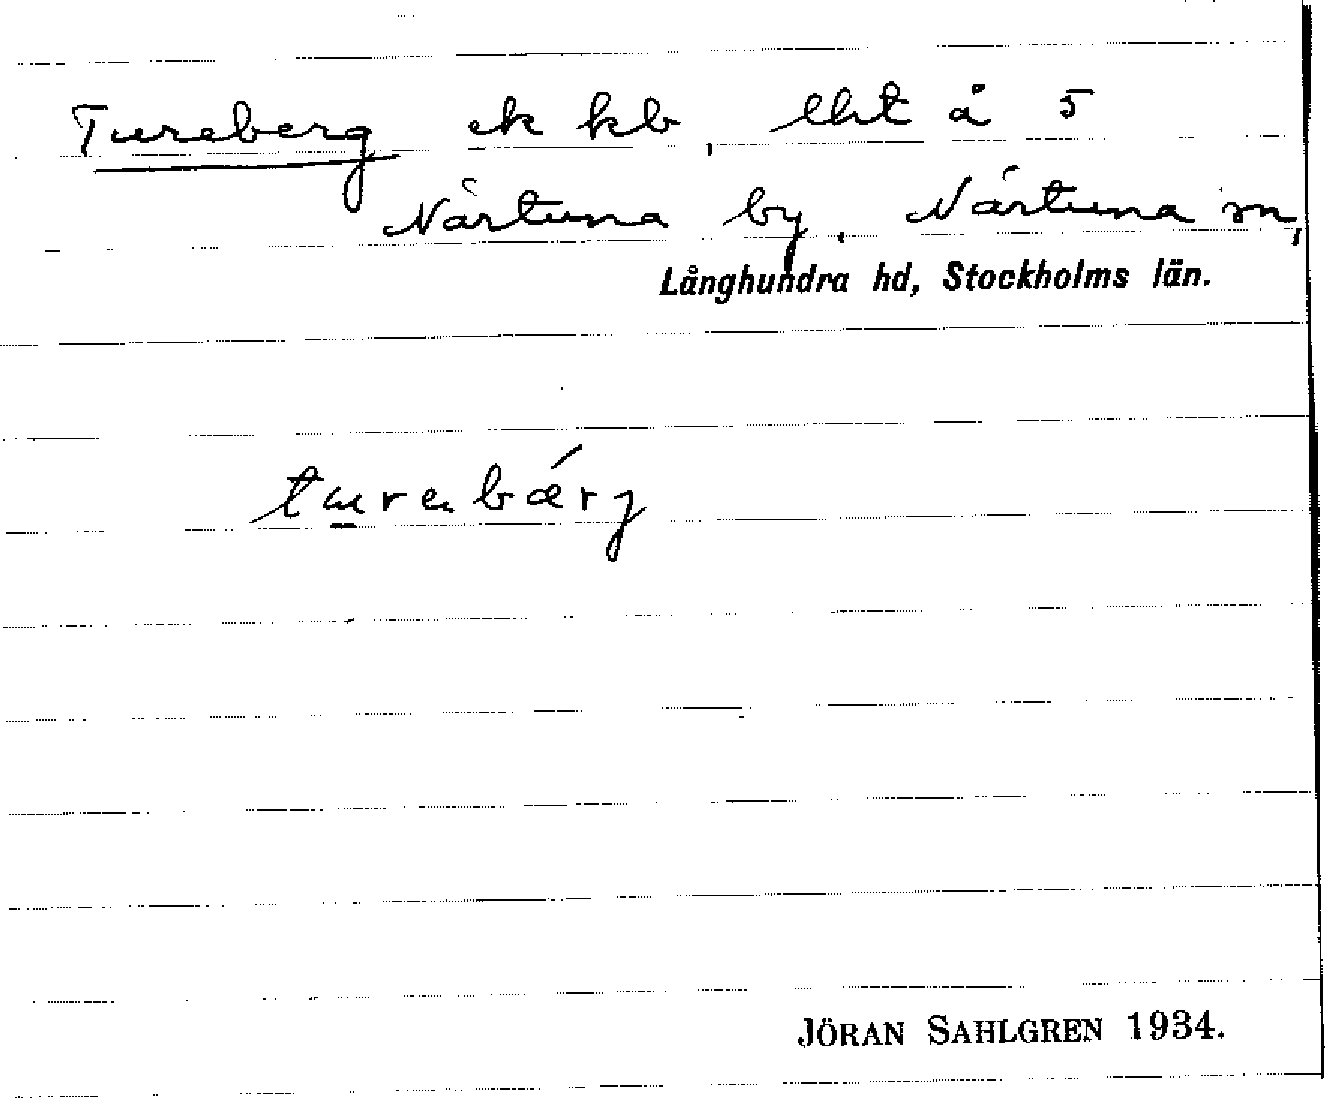 Tureberg ek kb, lht å 5
Närtuna by, Närtuna sn,
Långhundra hd, Stockholms län.
turebǽrj
JÖRAN SAHLGREN 1934.